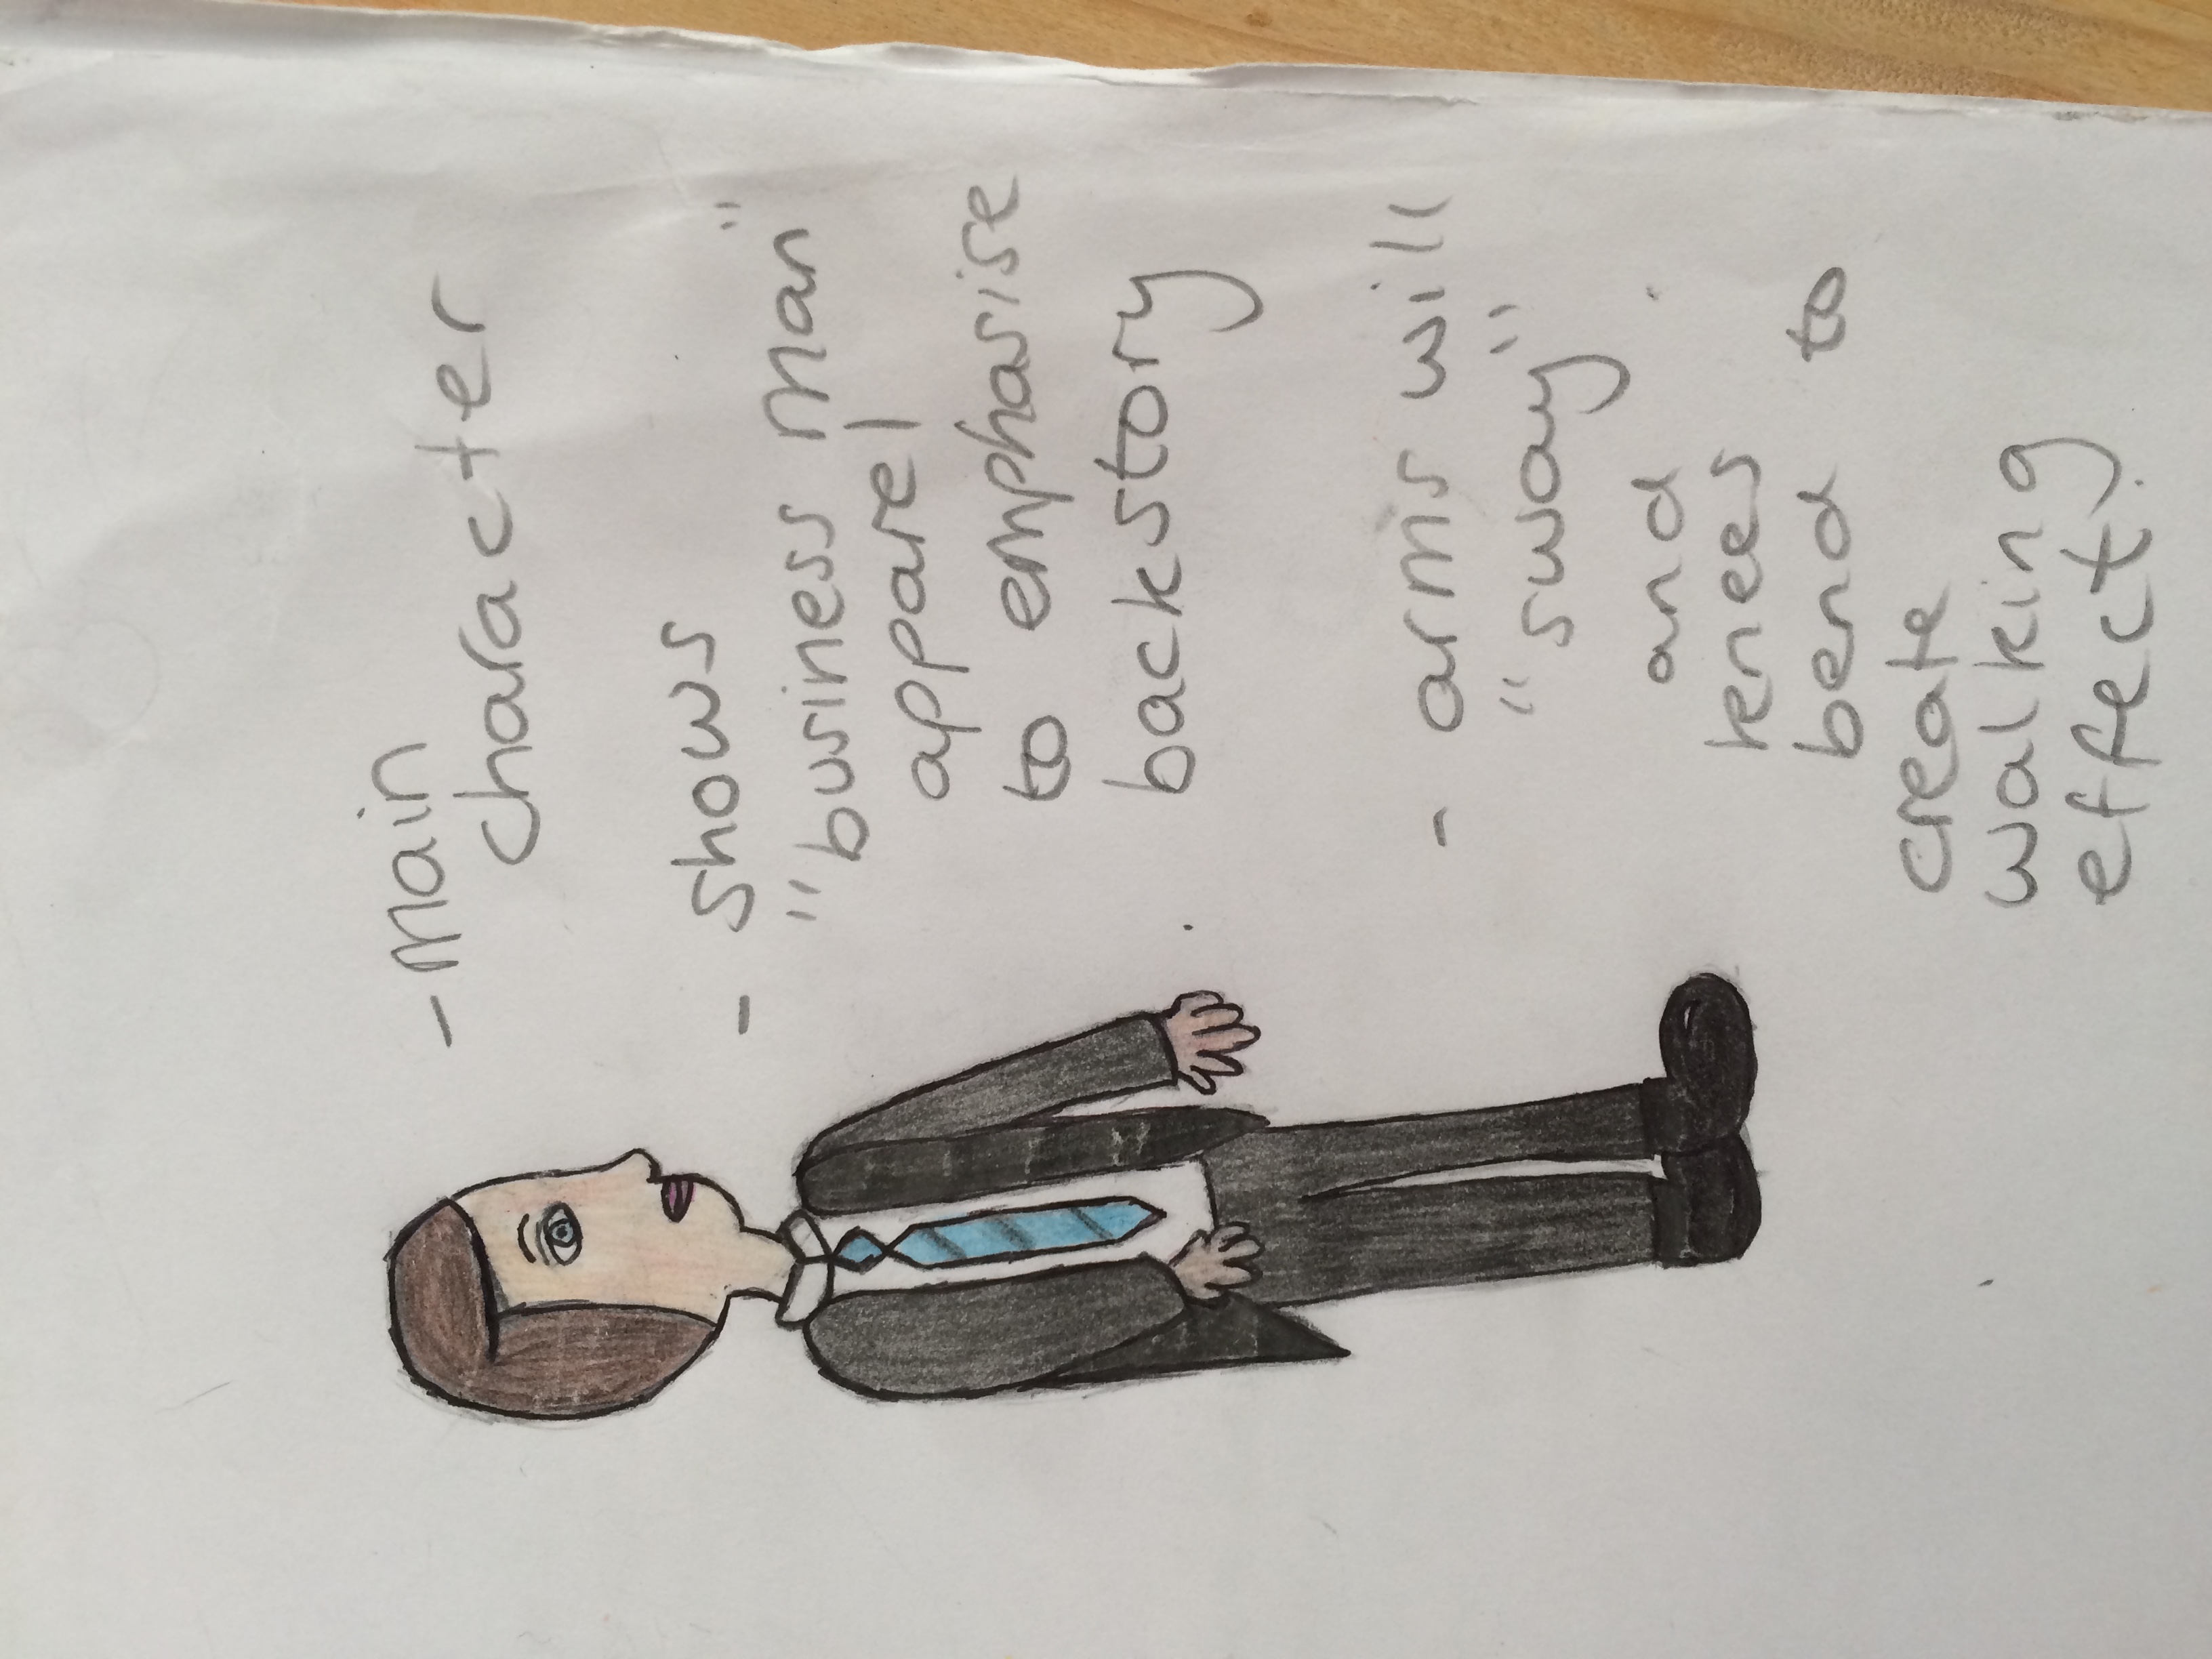 - Main
character
- shows
"business man"
apparel
to emphasise
backstory
- arms will
"sway"
and
knees
bend to
create
walking
effect.